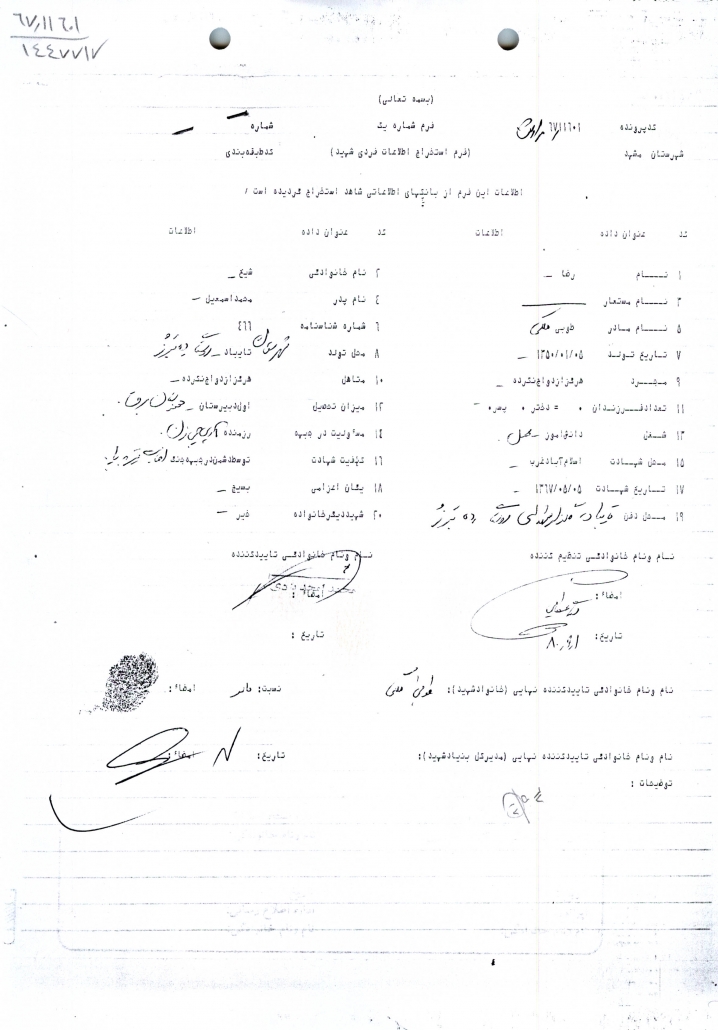 ۶۷٫۱۱۶۰۱
۱۴۴۷۷۱۷
(بسمه تعالی)
کدپرونده ۶۷۱۱۶۰۱ فرم شماره یک شماره
شهرستان مشهد (فرم استخراج اطلاعات فردی شهید) کدطبقه‌بندی
اطلاعات این فرم از بانکهای اطلاعاتی شاهد استخراج گردیده است /
کد عنوان داده اطلاعات کد عنوان داده اطلاعات
۱ نـــــام رضا ـ ۲ نام خانوادگی شیخ ـ
۳ نـــــام مستعار ۴ نام پدر محمداسمعیل ـ
۵ نـــام مــادر طوبی ملکی ۶ شماره شناسنامه ۴۶۶
۷ تـاریخ تـولـد ۱۳۵۰/۰۱/۰۵ ـ ۸ محل تولد تایباد ـ
۹ مـجـــرد هرگزازدواج‌نکرده ـ ۱۰ متاهل هرگزازدواج‌نکرده ـ
۱۱ تعدادفــرزنـدان ۰ = دختر ۰ پسر۰ ـ ۱۲ میزان تحصیل اول‌دبیرستان ـ
۱۳ شــغل دانش‌آموز ـ محصل ۱۴ مسئولیت در جبهه رزمنده
۱۵ مـحل شهـــادت اسلام‌آبادغرب ـ ۱۶ کیفیت شهادت توسط‌دشمن‌در‌جبهه‌جنگ
۱۷ تــاریخ شهــادت ۱۳۶۷/۰۵/۰۵ ـ ۱۸ یگان اعزامی بسیج ـ
۱۹ مــحل دفن ۲۰ شهیددیگرخانواده خیر ـ
نــام ونام خانوادگــی تنظیم کننده نــام ونام خانوادگــی تاییدکننده
امضاء: امضاء :
تاریخ: تاریخ :
نام ونام خانوادگی تاییدکننده نهایی (خانوادشهید): طوبی ملکی نسبت: مادر امضاء:
نام ونام خانوادگی تاییدکننده نهایی (مدیرکل بنیادشهید): تاریخ: امضاء:
توضیحات :